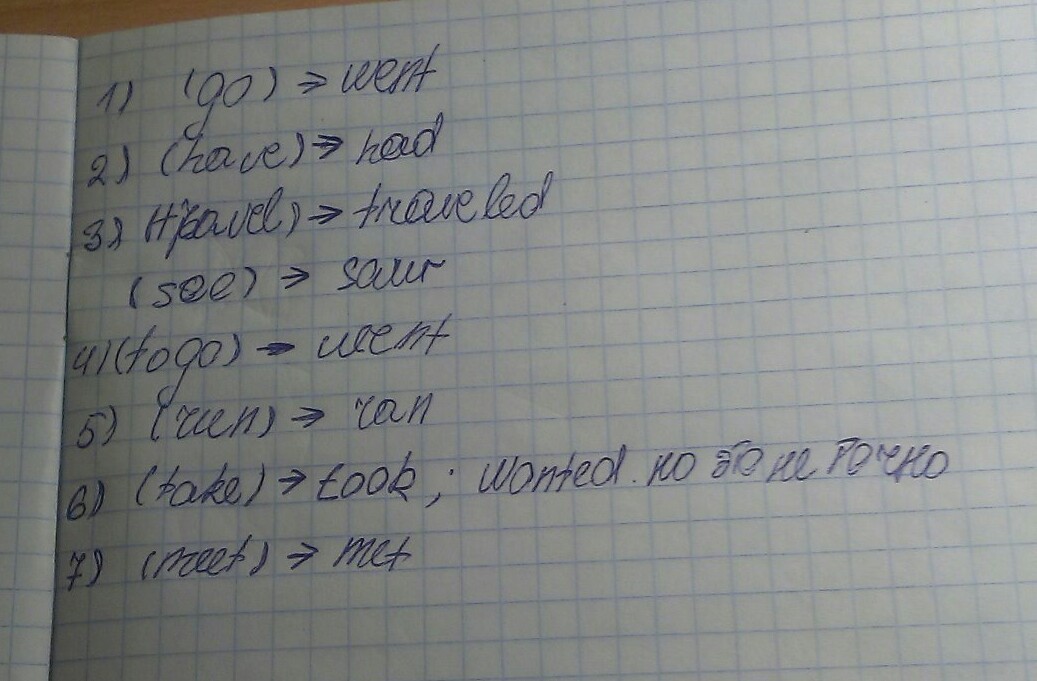 1) (go) → went
2) (have) → had
3) (travel) → traveled
(see) → saw
4) (to go) → went
5) (run) → ran
6) (take) → took; wanted. но это не точно
7) (meet) → met